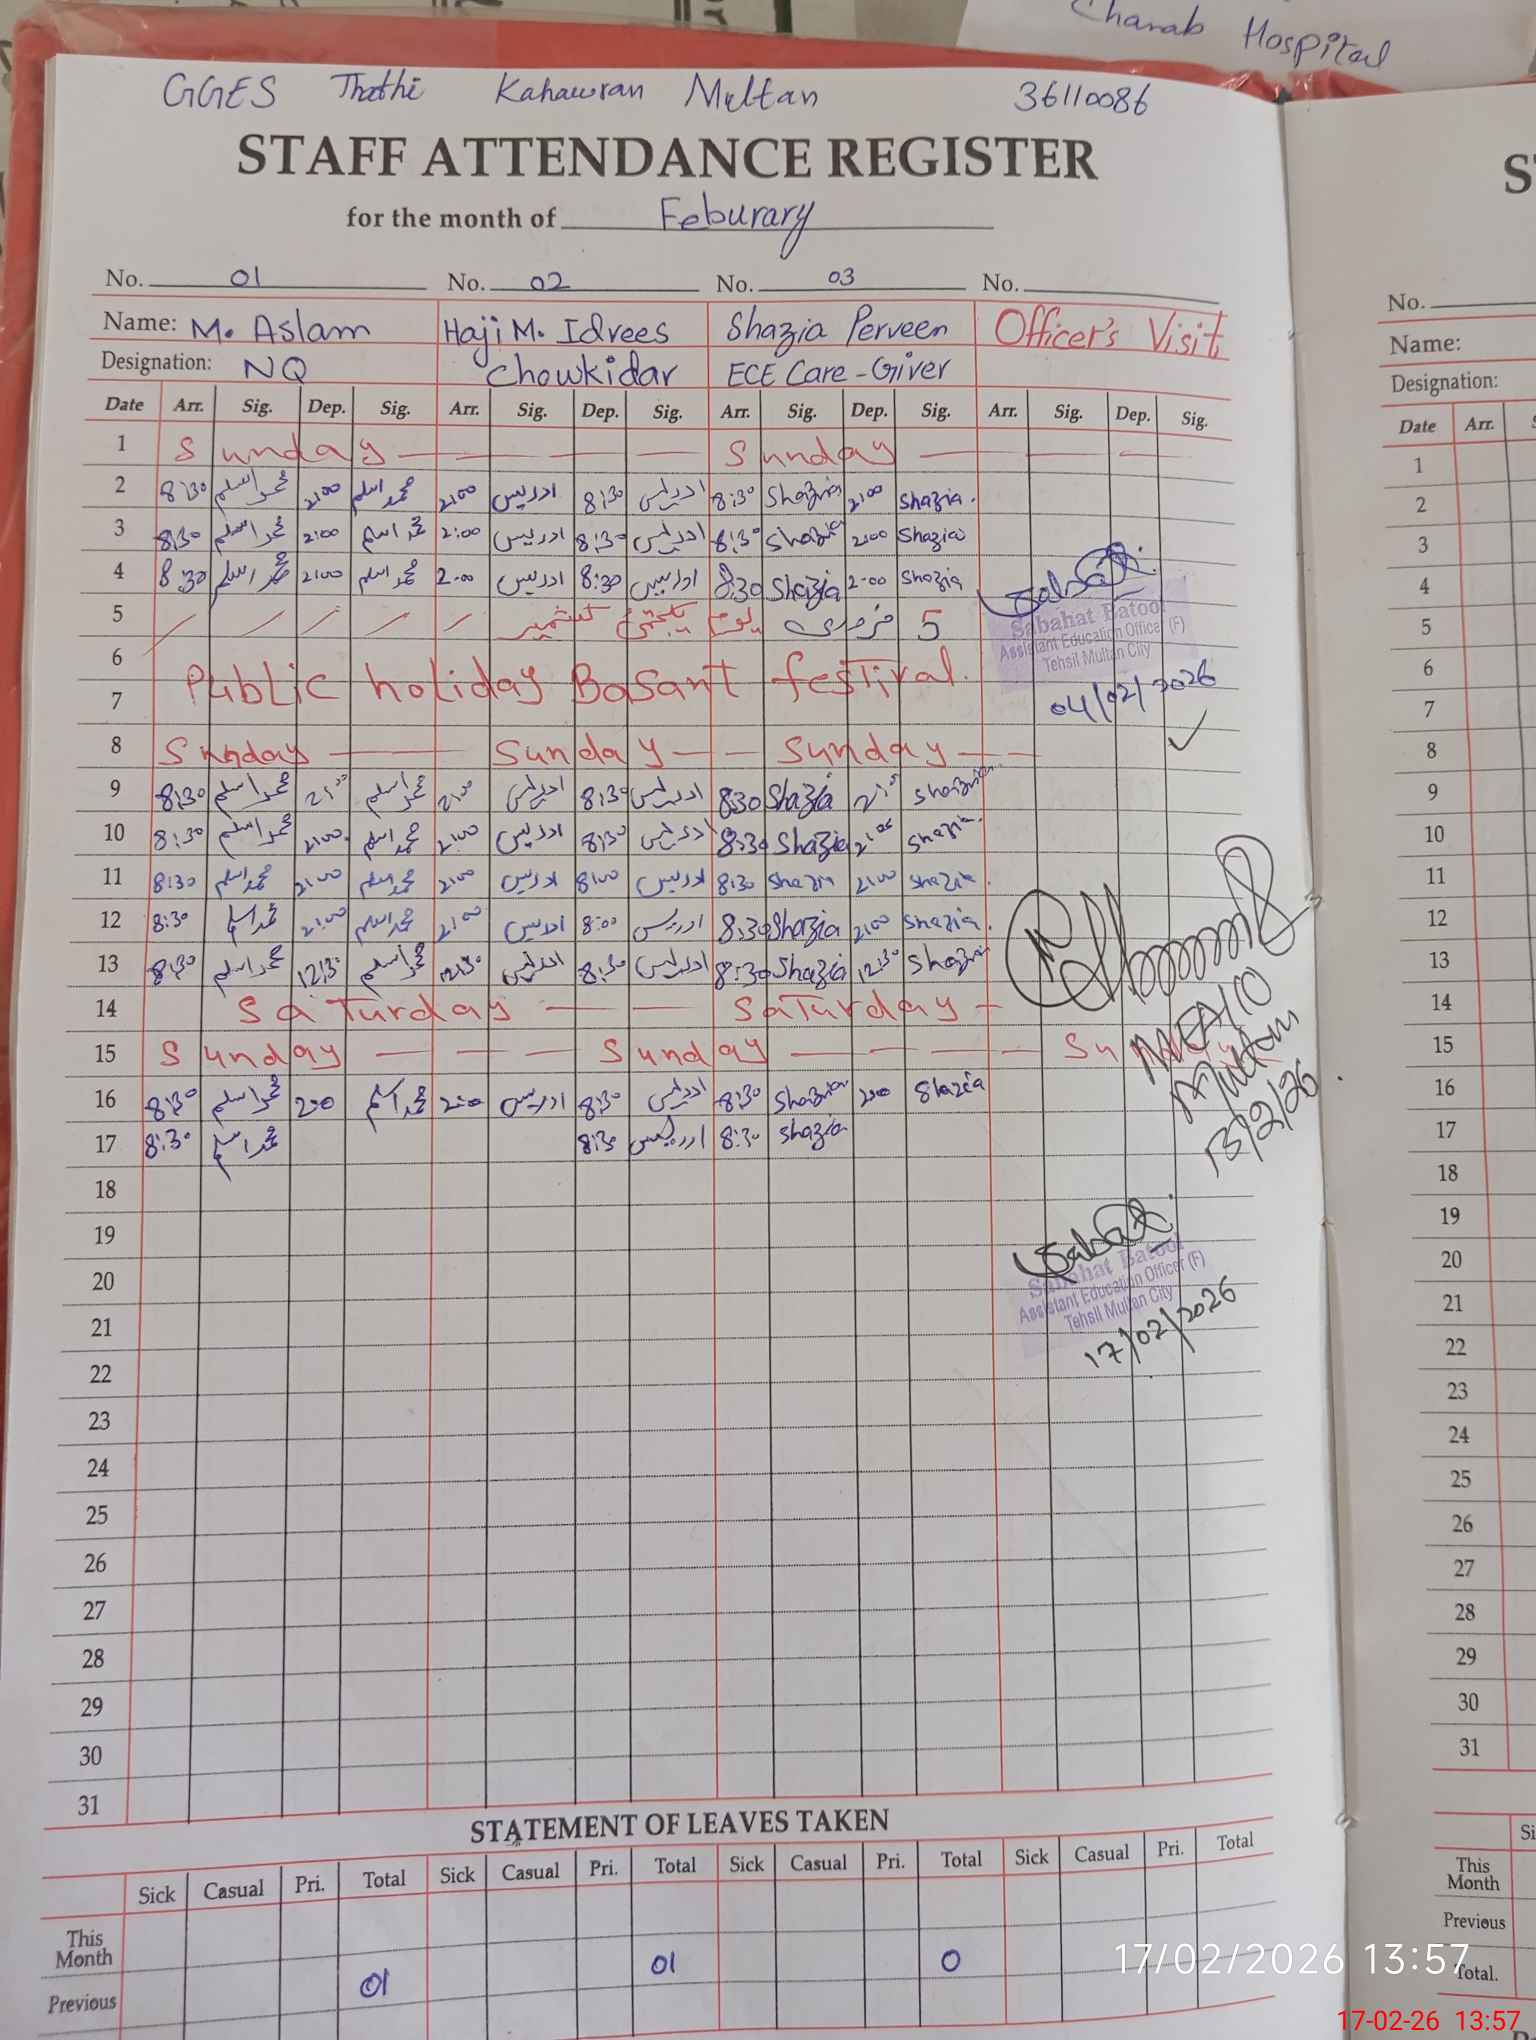 Chanab Hospital
GGES Thathi Kahawran Multan 36110086
STAFF ATTENDANCE REGISTER
for the month of Feburary
No. 01 No. 02 No. 03 No.
Name: M. Aslam Haji M. Idrees Shazia Perveen Officer's Visit
Designation: NQ Chowkidar ECE Care-Giver
Date Arr. Sig. Dep. Sig. Arr. Sig. Dep. Sig. Arr. Sig. Dep. Sig. Arr. Sig. Dep. Sig.
1 Sunday Sunday
2 8:30 محمد اسلم 2:00 محمد اسلم 2:00 ادریس 8:30 ادریس 8:30 Shazia 2:00 Shazia
3 8:30 محمد اسلم 2:00 محمد اسلم 2:00 ادریس 8:30 ادریس 8:30 Shazia 2:00 Shazia
4 8:30 محمد اسلم 2:00 محمد اسلم 2:00 ادریس 8:30 ادریس 8:30 Shazia 2:00 Shazia
5 5 فروری یوم یکجہتی کشمیر
6
Public holiday Basant festival.
7
8 Sunday Sunday Sunday
9 8:30 محمد اسلم 2:00 محمد اسلم 2:00 ادریس 8:30 ادریس 8:30 Shazia 2:00 Shazia
10 8:30 محمد اسلم 2:00 محمد اسلم 2:00 ادریس 8:30 ادریس 8:30 Shazia 2:00 Shazia
11 8:30 محمد اسلم 2:00 محمد اسلم 2:00 ادریس 8:00 ادریس 8:30 Shazia 2:00 Shazia
12 8:30 محمد اسلم 2:00 محمد اسلم 2:00 ادریس 8:00 ادریس 8:30 Shazia 2:00 Shazia
13 8:30 محمد اسلم 12:30 محمد اسلم 12:30 ادریس 8:30 ادریس 8:30 Shazia 12:30 Shazia
14 Saturday Saturday
15 Sunday Sunday Sunday
16 8:30 محمد اسلم 2:00 محمد اسلم 2:00 ادریس 8:30 ادریس 8:30 Shazia 2:00 Shazia
17 8:30 محمد اسلم 8:30 ادریس 8:30 Shazia
18
19
20
21
22
23
24
25
26
27
28
29
30
31
Sabahat Batool
Assistant Education Officer (F)
Tehsil Multan City
04/02/2026
Multan
13/2/26
Sabahat Batool
Assistant Education Officer (F)
Tehsil Multan City
17/02/2026
STATEMENT OF LEAVES TAKEN
Sick Casual Pri. Total Sick Casual Pri. Total Sick Casual Pri. Total Sick Casual Pri. Total
This Month
Previous 01 01 0
No.
Name:
Designation:
Date Arr.
1
2
3
4
5
6
7
8
9
10
11
12
13
14
15
16
17
18
19
20
21
22
23
24
25
26
27
28
29
30
31
This Month
Previous
Total.
17/02/2026 13:57
17-02-26 13:57